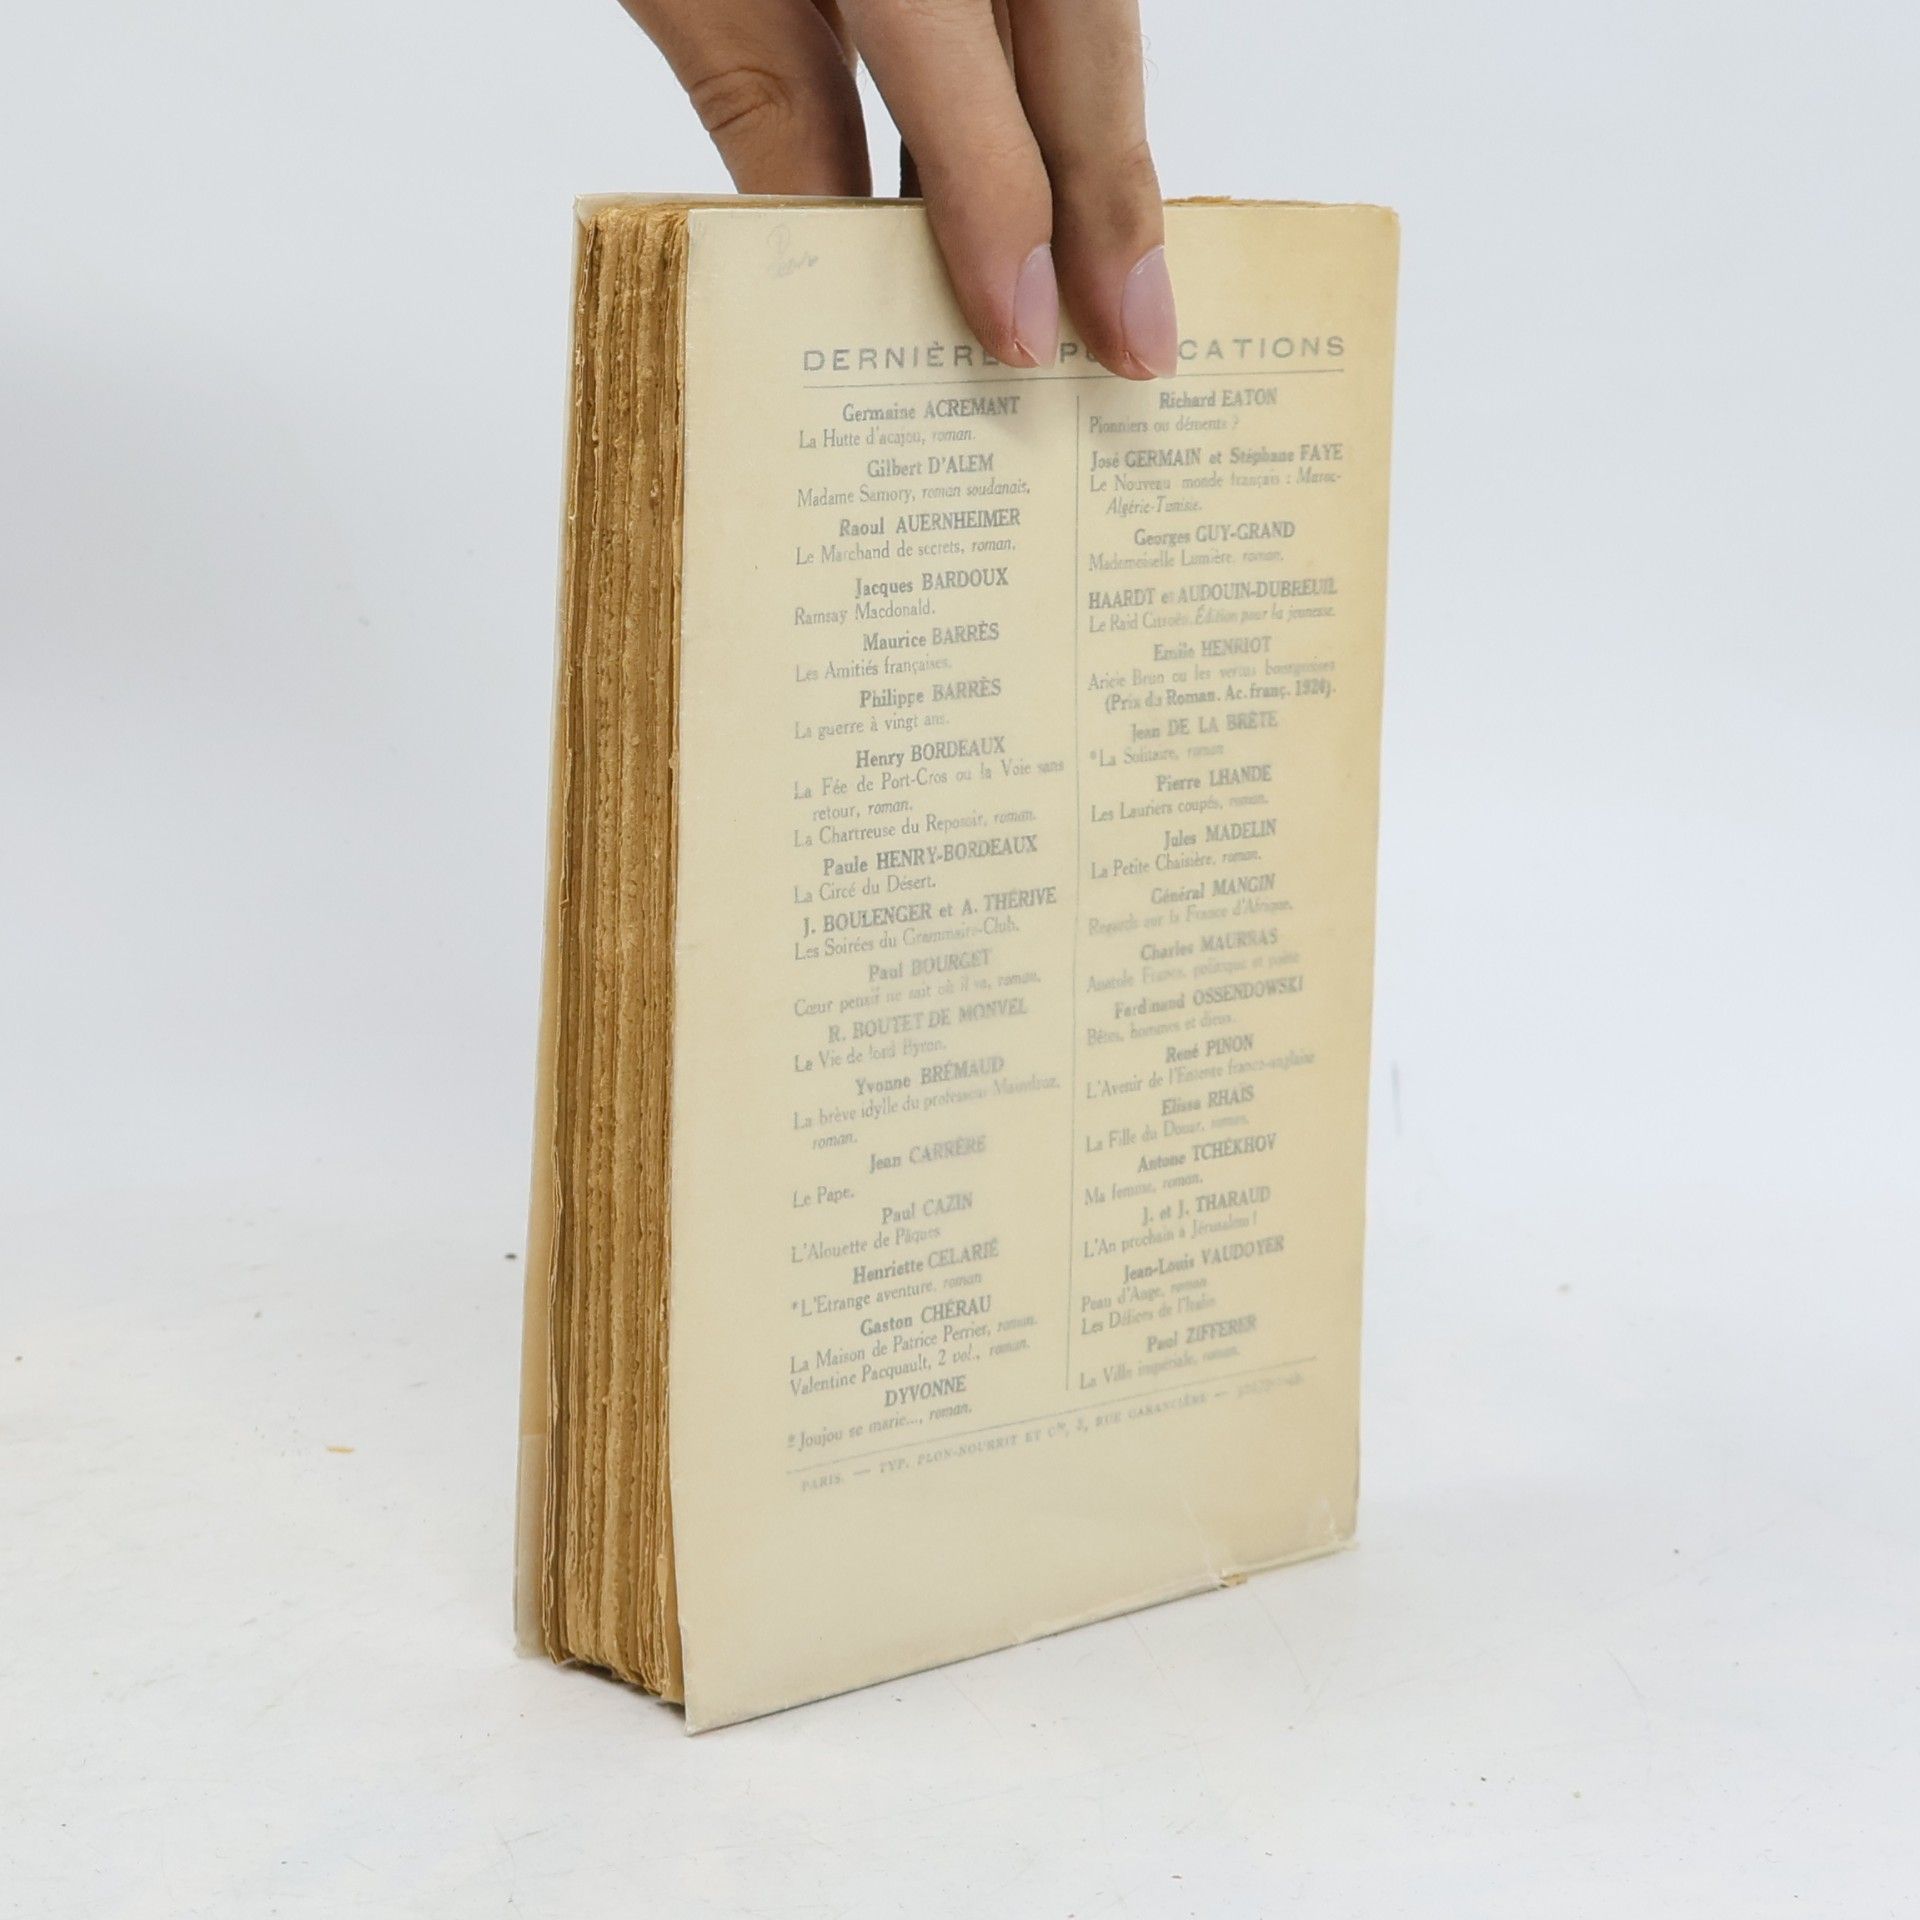 DERNIÈRE PU CATIONS
Germaine ACREMANT
La Hutte d'acajou, roman.
Gilbert D'ALEM
Madame Samory, roman soudanais.
Raoul AUERNHEIMER
Le Marchand de secrets, roman.
Jacques BARDOUX
Ramsay Macdonald.
Maurice BARRÈS
Les Amitiés françaises.
Philippe BARRÈS
La guerre à vingt ans.
Henry BORDEAUX
La Fée de Port-Cros ou la Voie sans
retour, roman.
La Chartreuse du Reposoir, roman.
Paule HENRY-BORDEAUX
La Circé du Désert.
J. BOULENGER et A. THÉRIVE
Les Soirées du Grammaire-Club.
Paul BOURGET
Cœur pensif ne sait où il va, roman.
R. BOUTET DE MONVEL
La Vie de lord Byron.
Yvonne BRÉMAUD
La brève idylle du professeur
roman.
Jean CARRÈRE
Le Pape.
Paul CAZIN
L'Alouette de Pâques
Henriette CELARIÉ
*L'Etrange aventure, roman
Gaston CHÉRAU
La Maison de Patrice Perrier, roman.
Valentine Pacquault, 2 vol., roman.
DYVONNE
*Joujou se marie..., roman.
Richard EATON
Pionniers ou déments ?
José GERMAIN et Stéphane FAYE
Le Nouveau monde français : Maroc-
Algérie-Tunisie.
Georges GUY-GRAND
Mademoiselle Lumière, roman.
HAARDT et AUDOUIN-DUBREUIL
Le Raid Citroën. Édition pour la jeunesse.
Emile HENRIOT
Aricie Brun ou les vertus bourgeoises
(Prix du Roman. Ac. franç. 1924).
Jean DE LA BRÈTE
*La Solitaire, roman
Pierre LHANDE
Les Lauriers coupés, roman.
Jules MADELIN
La Petite Chaisière, roman.
Général MANGIN
Regards sur la France d'Afrique.
Charles MAURRAS
Anatole France, politique et poète
Ferdinand OSSENDOWSKI
Bêtes, hommes et dieux.
René PINON
L'Avenir de l'Entente franco-anglaise
Elissa RHAÏS
La Fille du Douar, roman.
Antone TCHÉKHOV
Ma femme, roman.
J. et J. THARAUD
L'An prochain à Jérusalem !
Jean-Louis VAUDOYER
Peau d'Ange, roman
Les Délices de l'Italie
Paul ZIFFERER
La Ville impériale, roman.
PARIS. — TYP. PLON-NOURRIT ET Cie, 8, RUE GARANCIÈRE —